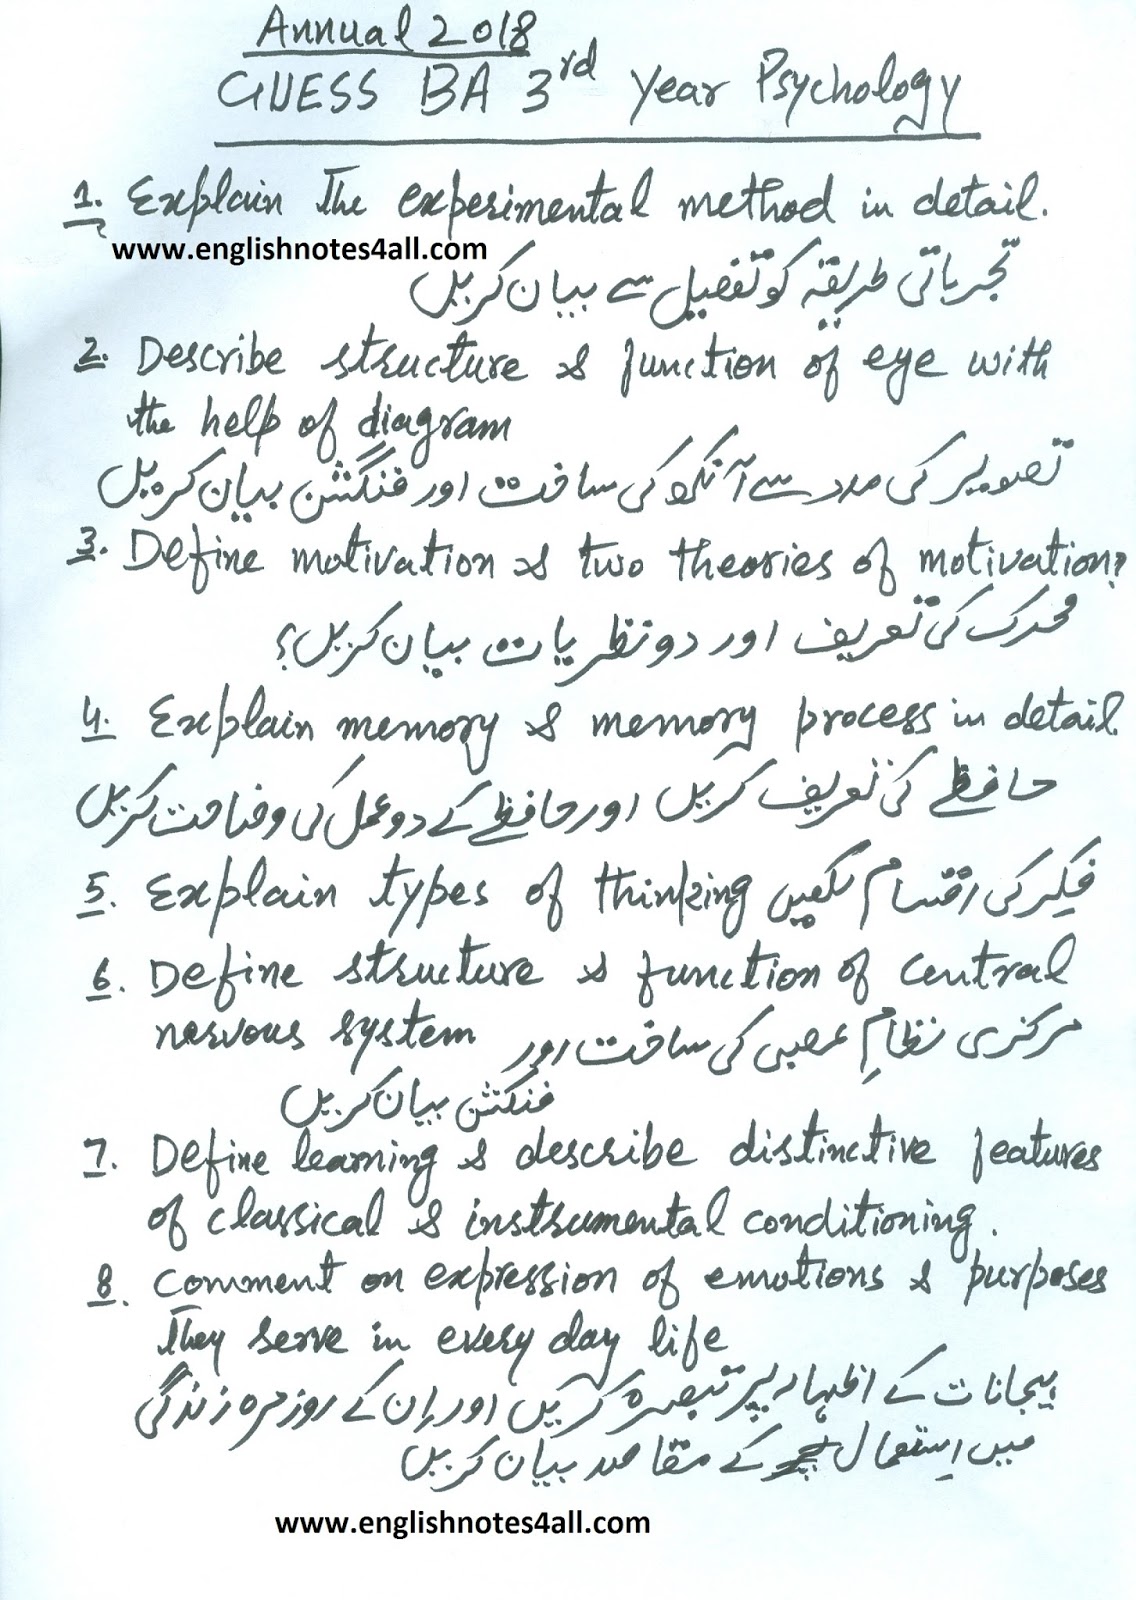 Annual 2018
GUESS BA 3rd Year Psychology
1. Explain The experimental method in detail.
www.englishnotes4all.com
تجرباتی طریقہ کو تفصیل سے بیان کریں
2. Describe structure & function of eye with
the help of diagram
تصویر کی مدد سے آنکھ کی ساخت اور فنکشن بیان کریں
3. Define motivation & two theories of motivation?
محرک کی تعریف اور دو نظریات بیان کریں؟
4. Explain memory & memory process in detail.
حافظے کی تعریف کریں اور حافظے کے دو عمل کی وضاحت کریں
5. Explain types of thinking فکر کی اقسام لکھیں
6. Define structure & function of central
nervous system مرکزی نظامِ عصبی کی ساخت اور
فنکشن بیان کریں
7. Define learning & describe distinctive features
of classical & instrumental conditioning.
8. Comment on expression of emotions & purposes
They serve in every day life
ہیجانات کے اظہار پر تبصرہ کریں اور اِن کے روزمرہ زندگی
میں اِستعمال کے مقاصد بیان کریں
www.englishnotes4all.com